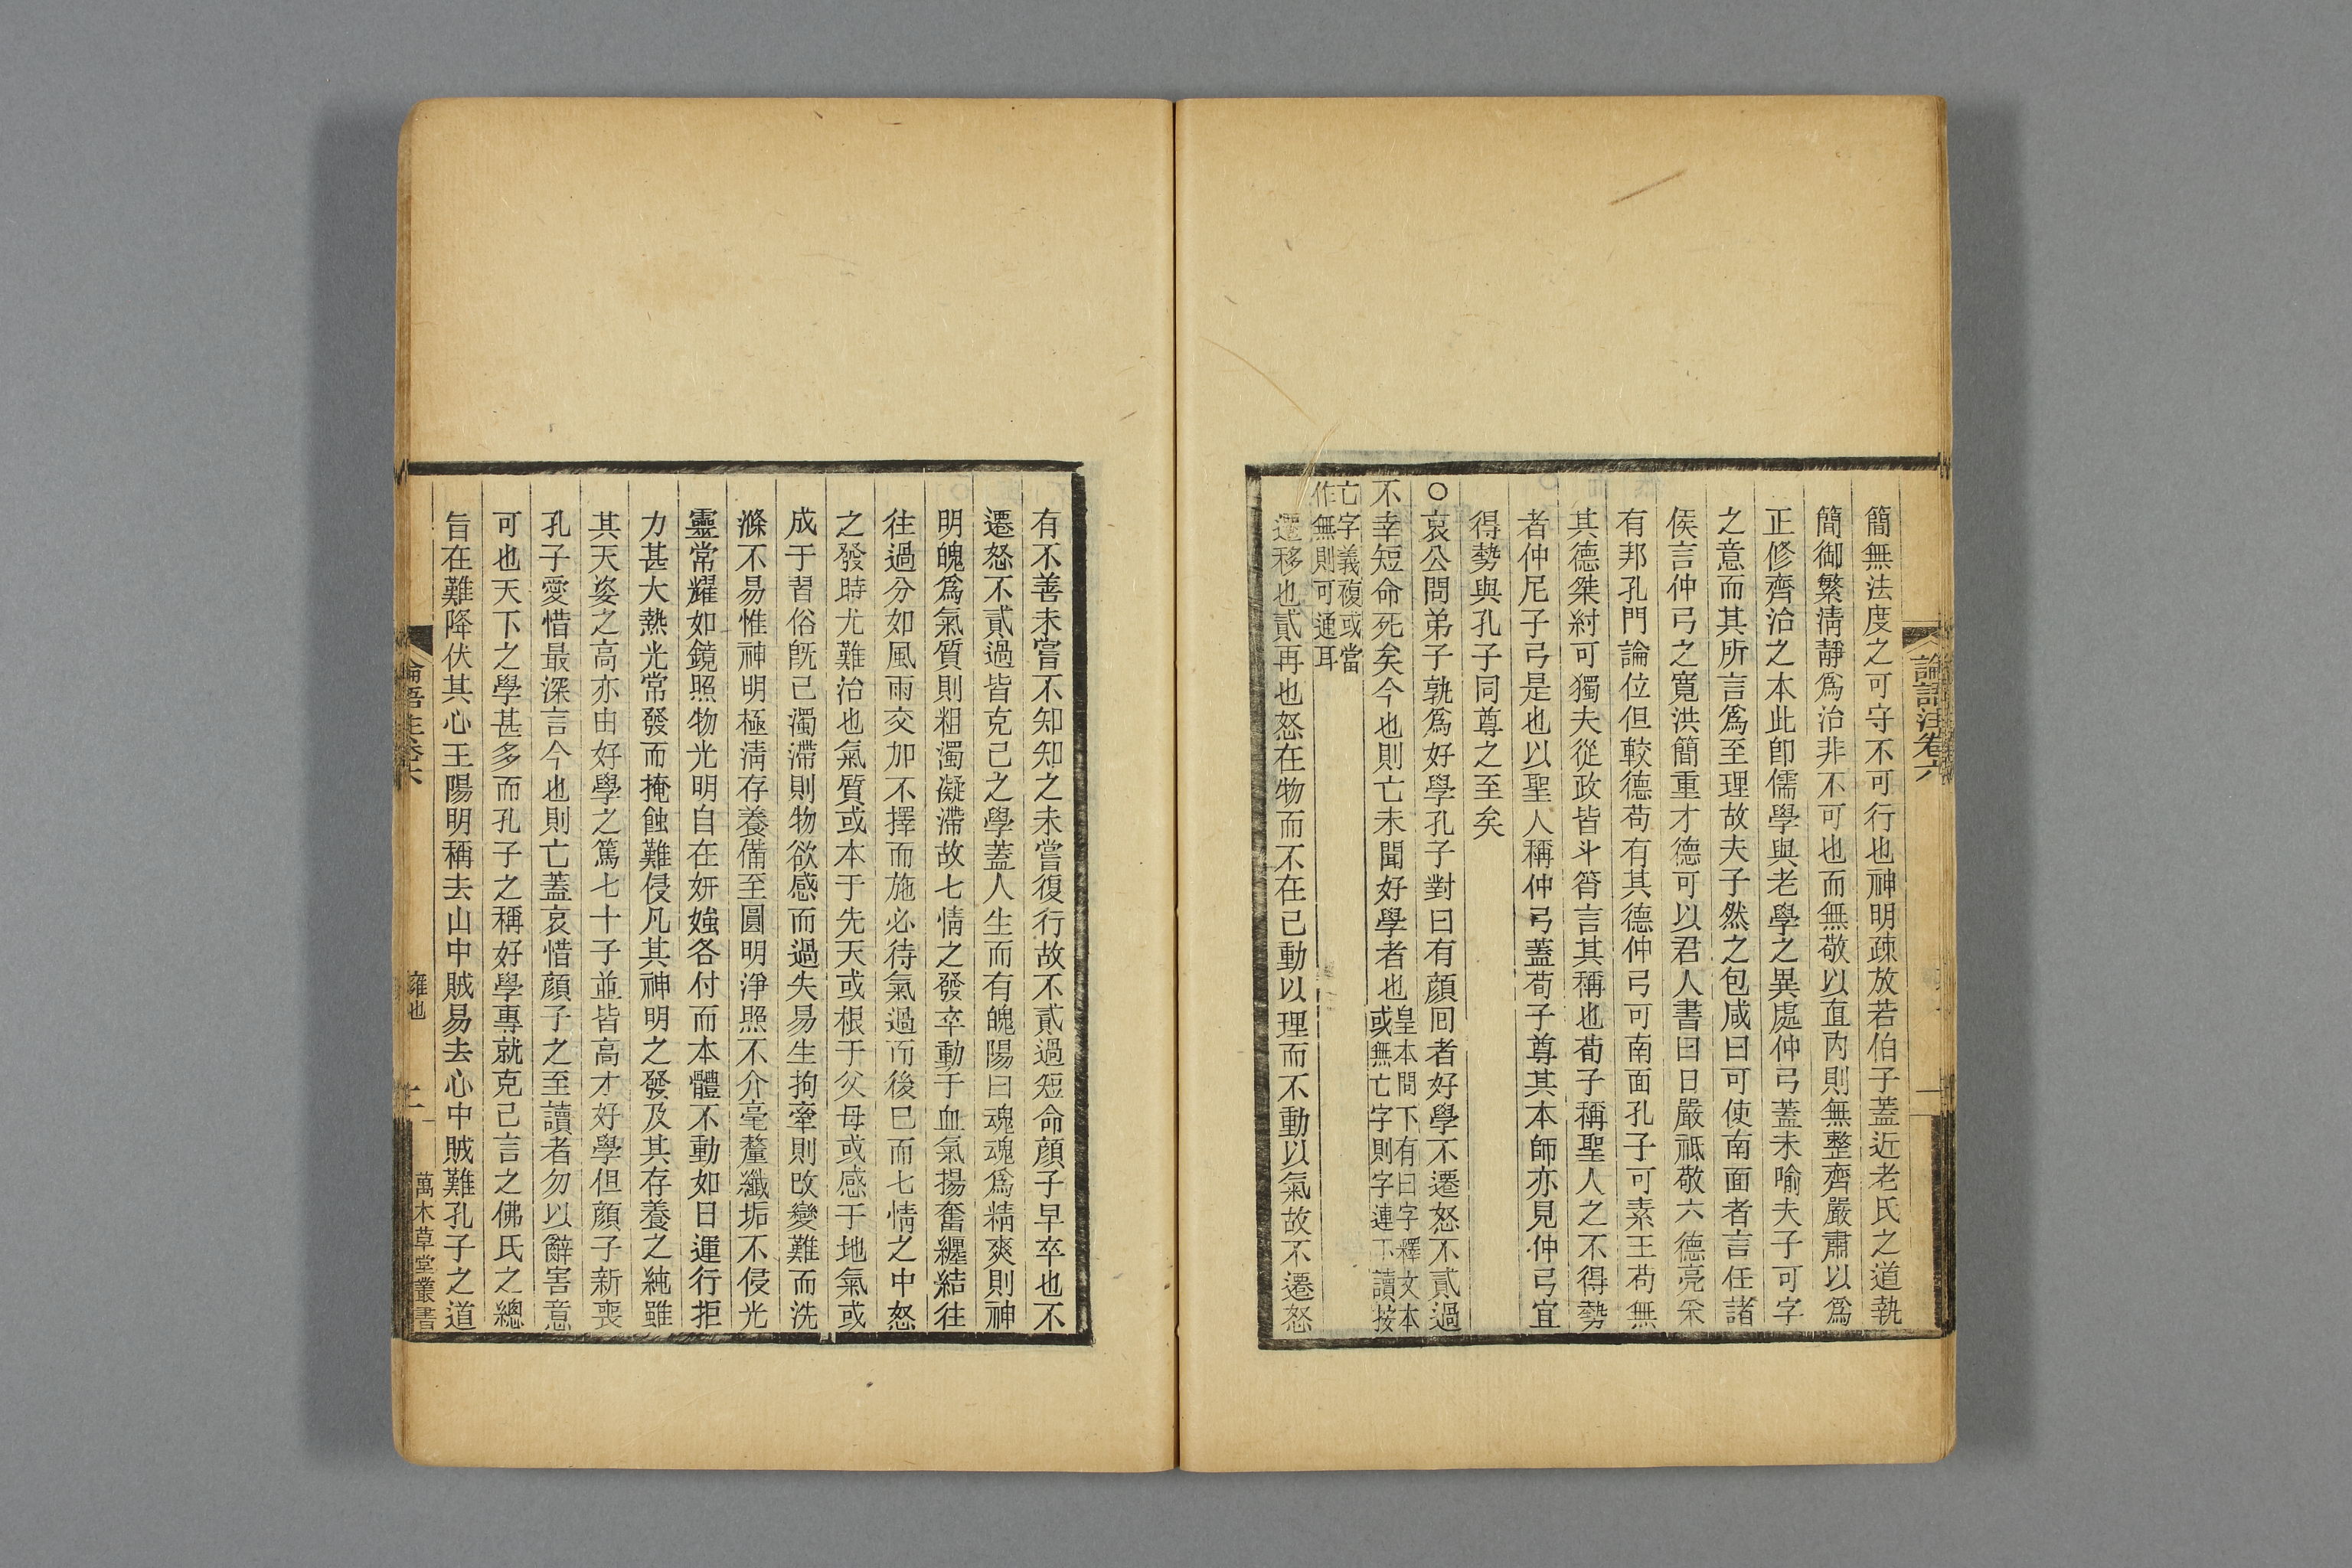 論語注卷六
一
簡無法度之可守不可行也神明疎放若伯子蓋近老氏之道執
簡御繁淸靜爲治非不可也而無敬以直內則無整齊嚴肅以爲
正修齊治之本此卽儒學與老學之異處仲弓蓋未喻夫子可字
之意而其所言爲至理故夫子然之包咸曰可使南面者言任諸
侯言仲弓之寬洪簡重才德可以君人書曰日嚴祗敬六德亮采
有邦孔門論位但較德苟有其德仲弓可南面孔子可素王苟無
其德桀紂可獨夫從政皆斗筲言其稱也荀子稱聖人之不得勢
者仲尼子弓是也以聖人稱仲弓蓋荀子尊其本師亦見仲弓宜
得勢與孔子同尊之至矣
○哀公問弟子孰爲好學孔子對曰有顏回者好學不遷怒不貳過
不幸短命死矣今也則亡未聞好學者也皇本問下有曰字釋文本
或無亡字則字連下讀按
亡字義複或當
作無則可通耳
遷移也貳再也怒在物而不在己動以理而不動以氣故不遷怒
有不善未嘗不知知之未嘗復行故不貳過短命顏子早卒也不
遷怒不貳過皆克己之學蓋人生而有魄陽曰魂魂爲精爽則神
明魄爲氣質則粗濁凝滯故七情之發卒動于血氣揚奮纏結往
往過分如風雨交加不擇而施必待氣過而後已而七情之中怒
之發時尤難治也氣質或本于先天或根于父母或感于地氣或
成于習俗旣已濁滯則物欲感而過失易生拘牽則改變難而洗
滌不易惟神明極淸存養備至圓明淨照不介毫釐纖垢不侵光
靈常耀如鏡照物光明自在妍媸各付而本體不動如日運行拒
力甚大熱光常發而掩蝕難侵凡其神明之發及其存養之純雖
其天姿之高亦由好學之篤七十子並皆高才好學但顏子新喪
孔子愛惜最深言今也則亡蓋哀惜顏子之至讀者勿以辭害意
可也天下之學甚多而孔子之稱好學專就克己言之佛氏之總
旨在難降伏其心王陽明稱去山中賊易去心中賊難孔子之道
論語注卷六
雍也
二
萬木草堂叢書